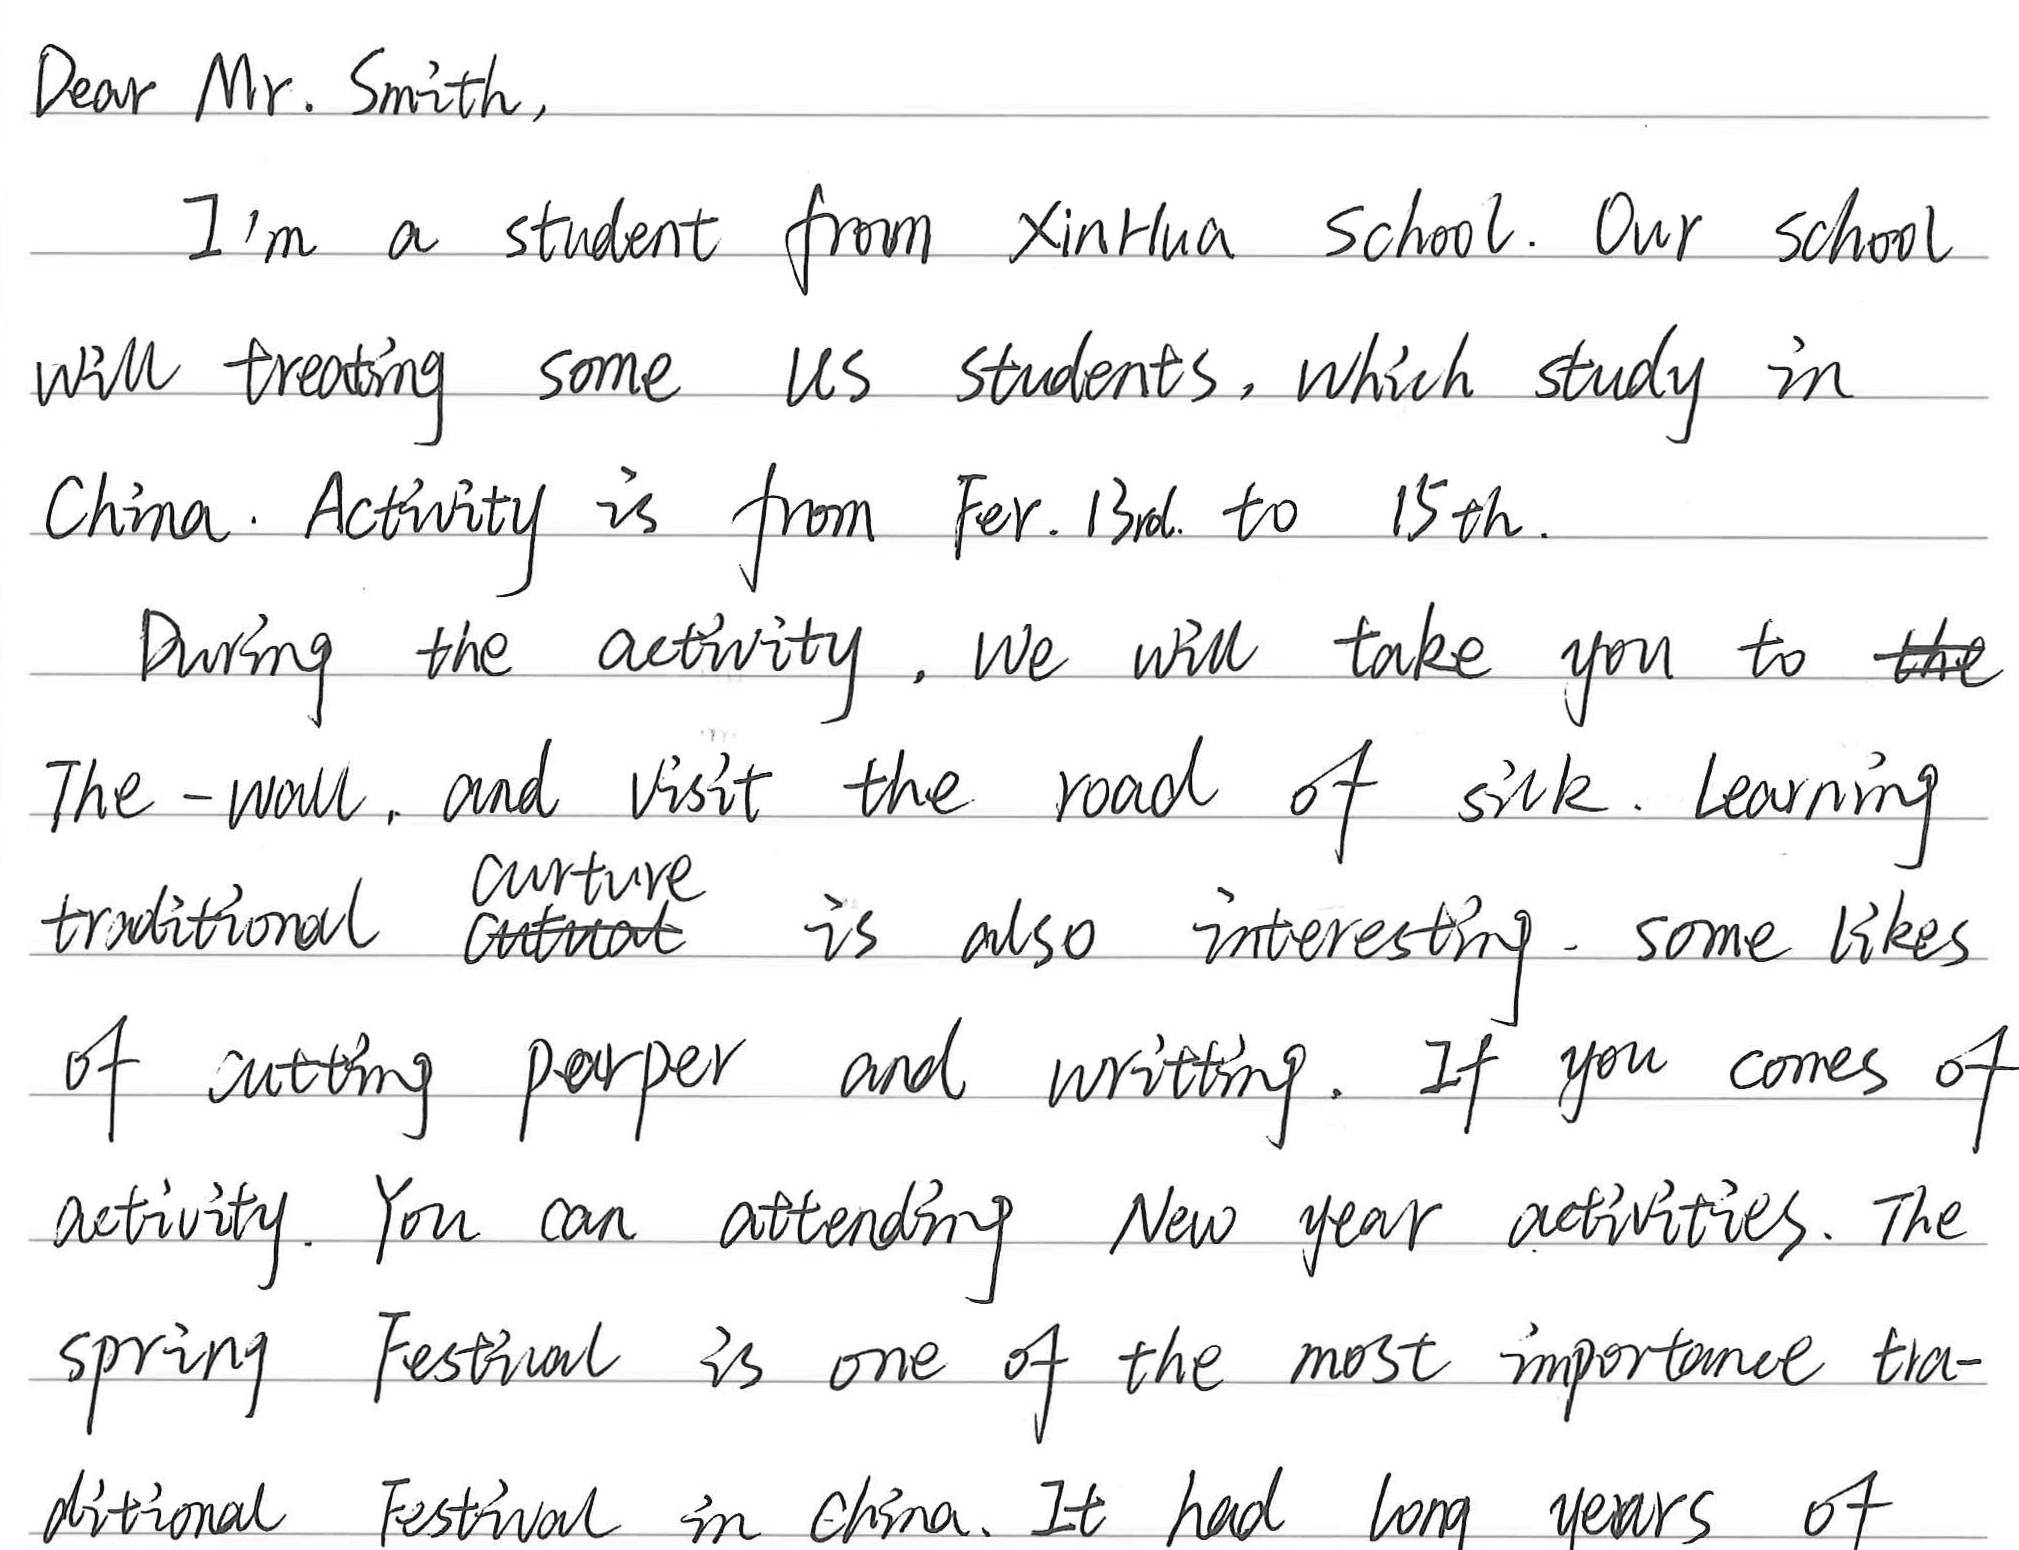 Dear Mr. Smith,
I'm a student from XinHua school. Our school
will treating some US students, which study in
China. Activity is from Fer. 13rd. to 15th.
During the activity, we will take you to the
The-wall, and visit the road of silk. Learning
traditional curture is also interesting. some likes
of cutting parper and writting. If you comes of
activity. You can attending New year activities. The
spring Festival is one of the most importance tra-
ditional Festival in china. It had long years of